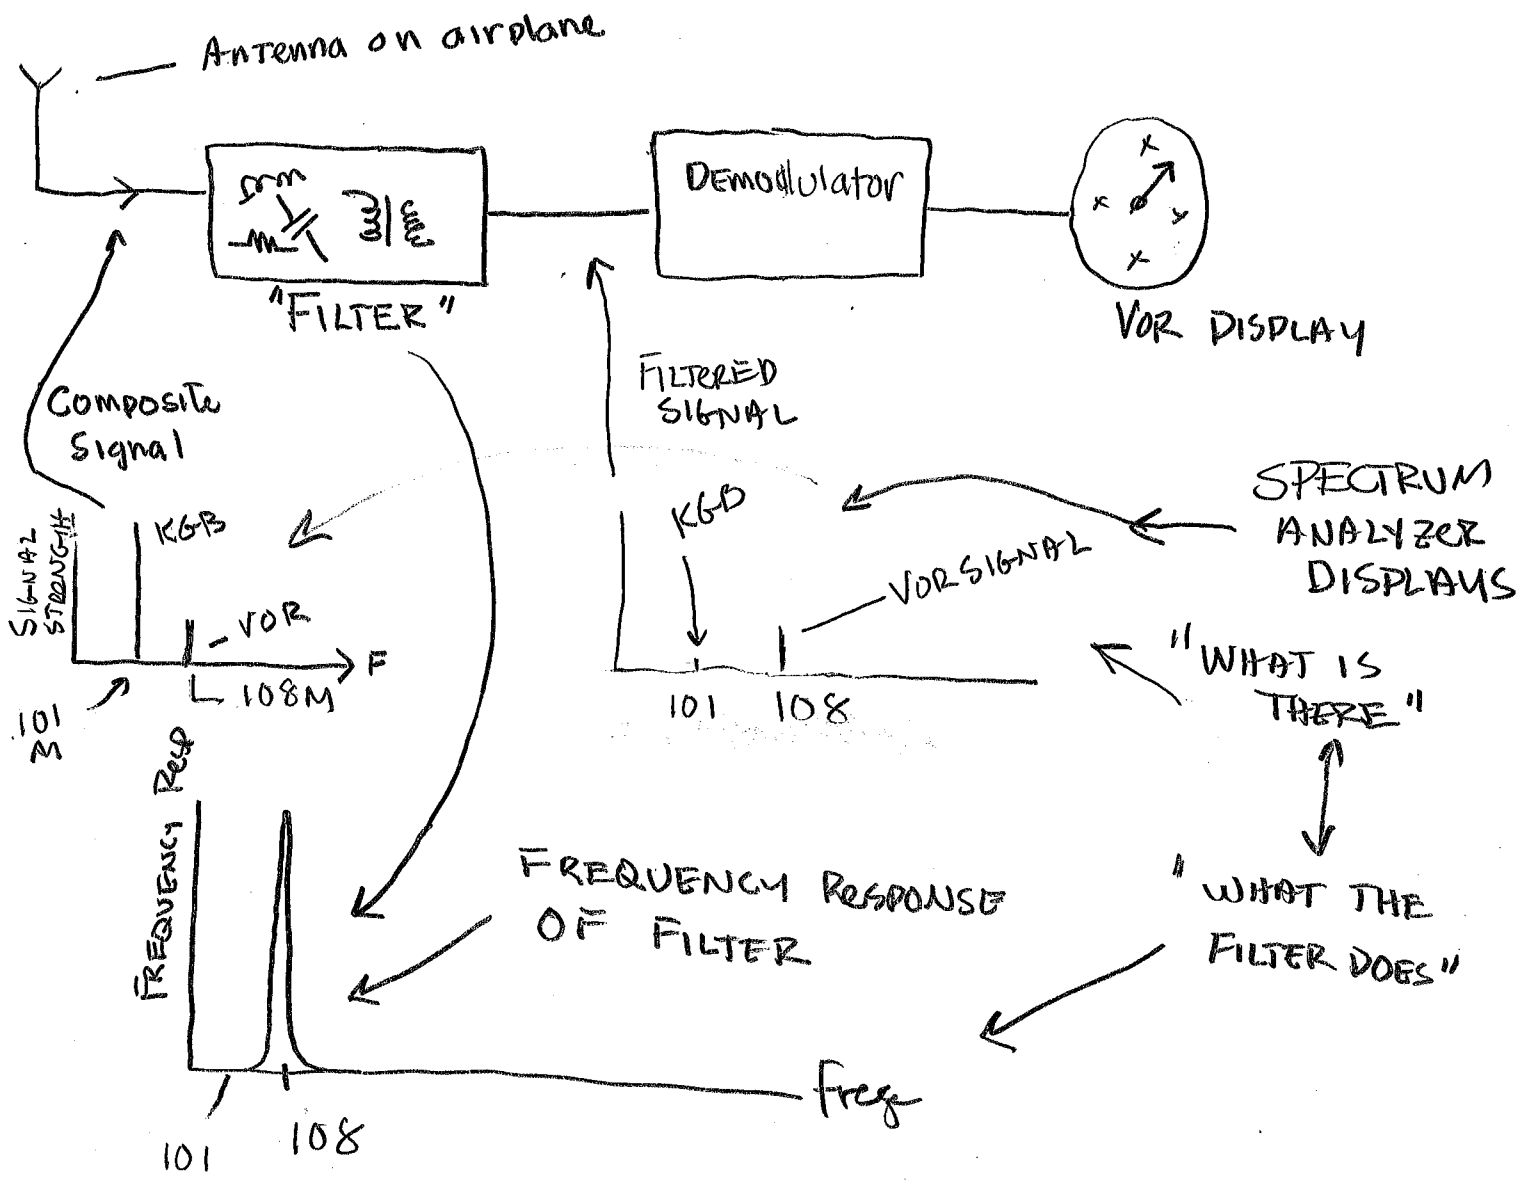 Antenna on airplane
Demodulator
"FILTER"
VOR DISPLAY
Composite
Signal
FILTERED
SIGNAL
SIGNAL
STRENGTH
KGB
VOR
F
108M
101
M
KGB
VOR SIGNAL
101 108
SPECTRUM
ANALYZER
DISPLAYS
"WHAT IS
THERE"
"WHAT THE
FILTER DOES"
FREQUENCY Resp
FREQUENCY RESPONSE
OF FILTER
Freq
101
108